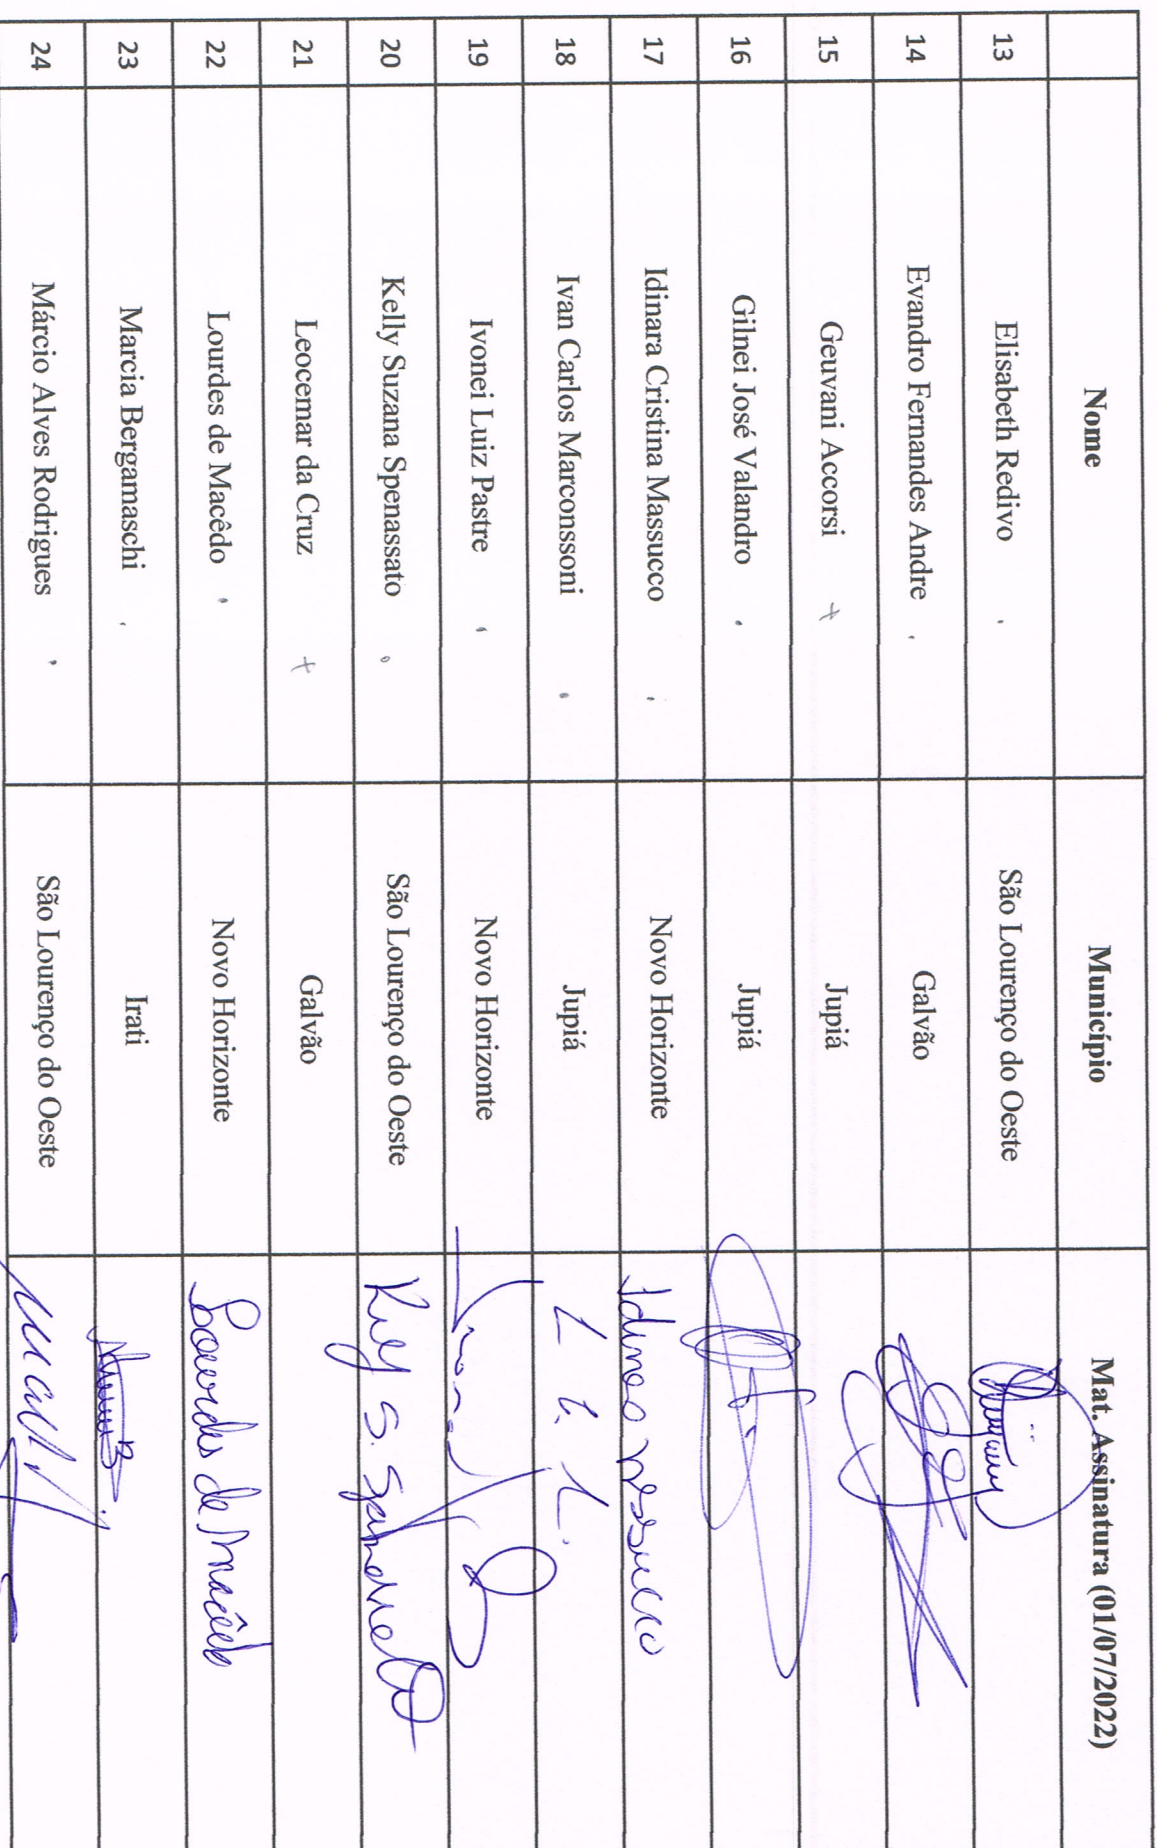 Nome Município Mat. Assinatura (01/07/2022)
13 Elisabeth Redivo São Lourenço do Oeste
14 Evandro Fernandes Andre Galvão
15 Geuvani Accorsi Jupiá
16 Gilnei José Valandro Jupiá
17 Idinara Cristina Massucco Novo Horizonte
18 Ivan Carlos Marconssoni Jupiá
19 Ivonei Luiz Pastre Novo Horizonte
20 Kelly Suzana Spenassato São Lourenço do Oeste
21 Leocemar da Cruz Galvão
22 Lourdes de Macêdo Novo Horizonte Lourdes de Macêdo
23 Marcia Bergamaschi Irati
24 Márcio Alves Rodrigues São Lourenço do Oeste